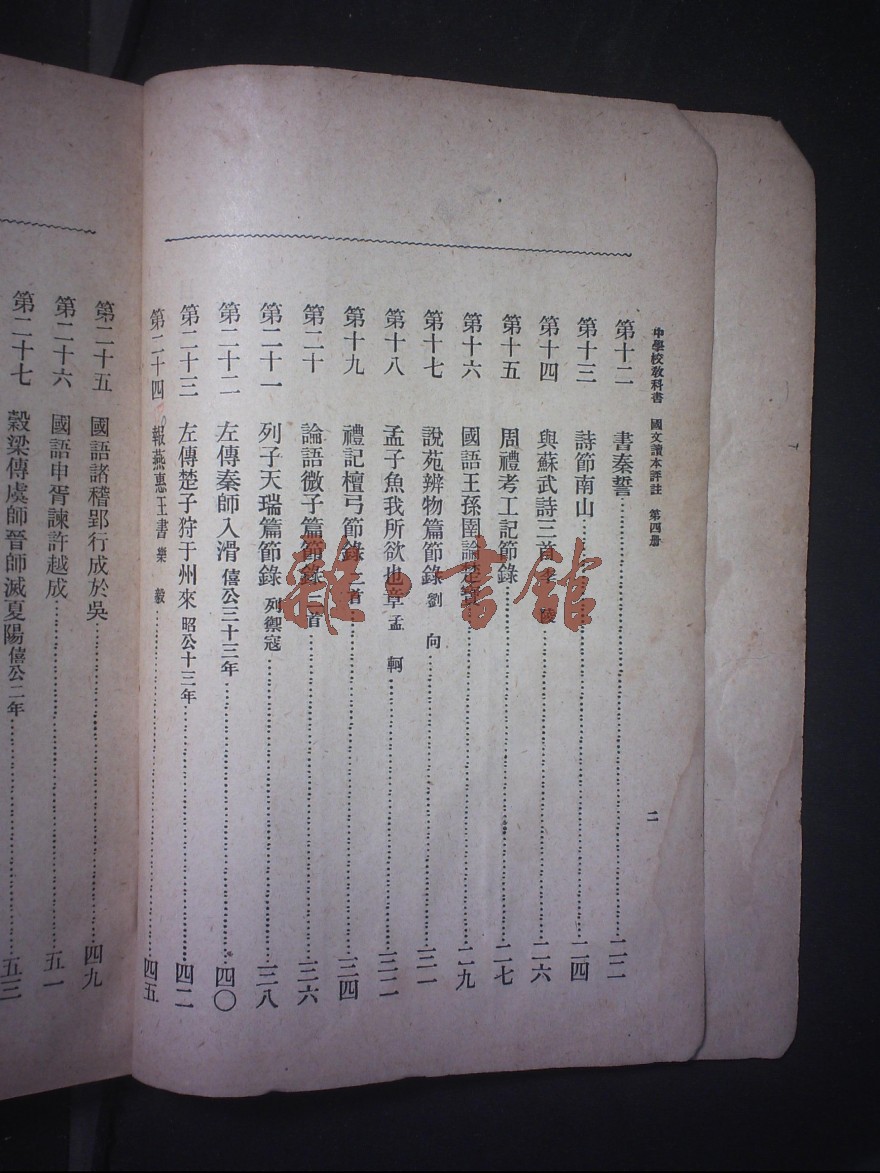 中學校教科書 國文讀本評註 第四册
二
第十二 書秦誓 二二
第十三 詩節南山 二四
第十四 與蘇武詩三首 李陵 二六
第十五 周禮考工記節錄 二七
第十六 國語王孫圉論楚寶 二九
第十七 說苑辨物篇節錄 劉向 三一
第十八 孟子魚我所欲也章 孟軻 三二
第十九 禮記檀弓節錄二首 三四
第二十 論語微子篇節錄三首 三六
第二十一 列子天瑞篇節錄 列禦寇 三八
第二十二 左傳秦師入滑 僖公三十三年 四〇
第二十三 左傳楚子狩于州來 昭公十三年 四二
第二十四 報燕惠王書 樂毅 四五
第二十五 國語諸稽郢行成於吳 四九
第二十六 國語申胥諫許越成 五一
第二十七 穀梁傳虞師晉師滅夏陽 僖公二年 五三
雜·書館